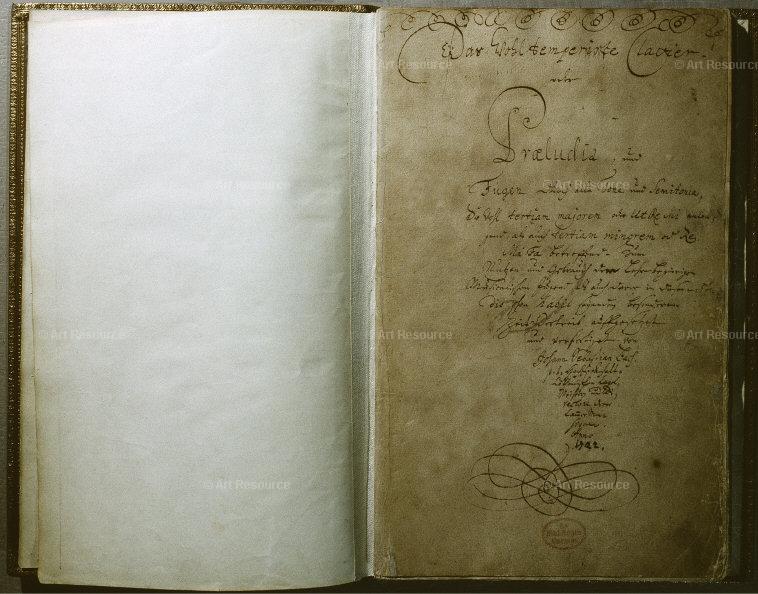 Das Wohltemperirte Clavier.
oder
Præludia, und
Fugen durch alle Tone und Semitonia,
So wohl tertiam majorem oder Ut Re Mi anlan-
gend, als auch tertiam minorem oder Re
Mi Fa betreffend. Zum
Nutzen und Gebrauch der Lehrbegierigen
Musicalischen Jugend, als auch derer in diesem stu-
dio schon habil seyenden besonderem
Zeitvertreib auffgesetzet
und verfertiget von
Johann Sebastian Bach.
p. t. Hochfürstlich
Capel-
Meistern und
Directore derer
Cammer Mu-
siquen.
Anno
1722.
© Art Resource
© Art Resource
© Art Resource
© Art Resource
© Art Resource
© Art Resource
© Art Resource
© Art Resource
© Art Resource
© Art Resource